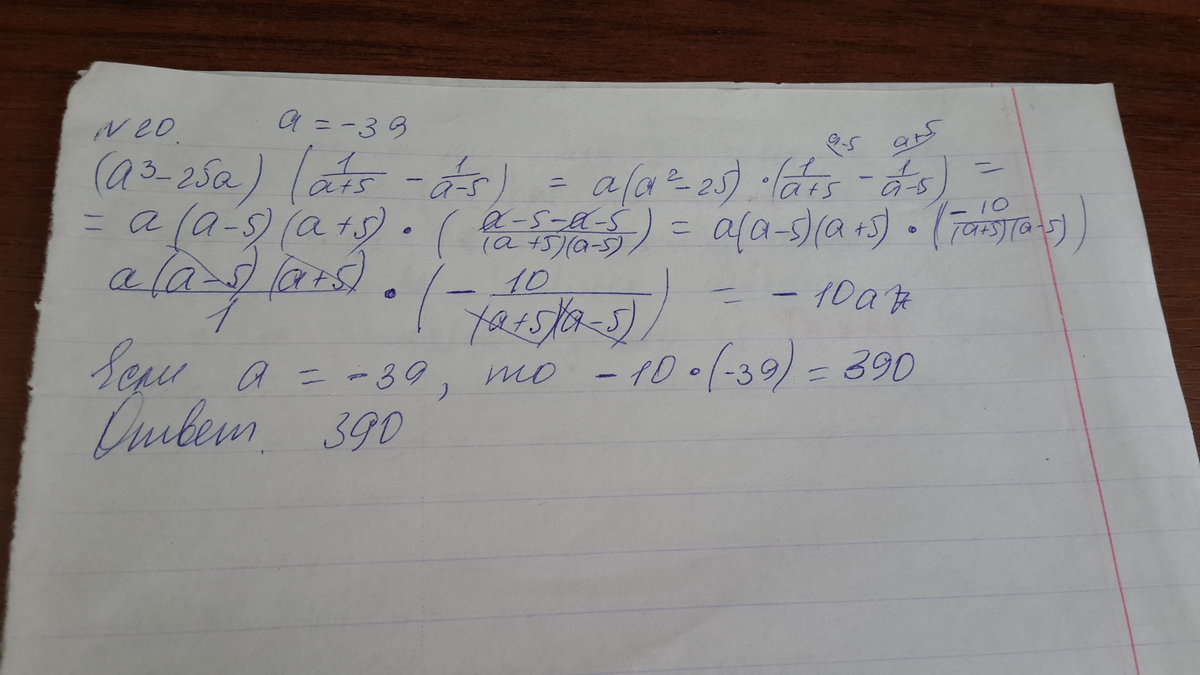 N 20. a = -39
(a³-25a) (1/(a+5) - 1/(a-5)) = a(a²-25)·(1/(a+5) - 1/(a-5)) = a-5 a+5
= a(a-5)(a+5)·((a-5-a-5)/((a+5)(a-5))) = a(a-5)(a+5)·(-10/((a+5)(a-5)))
a(a-5)(a+5)/1 · (-10/((a+5)(a-5))) = -10a
Если a = -39, то -10·(-39) = 390
Ответ. 390